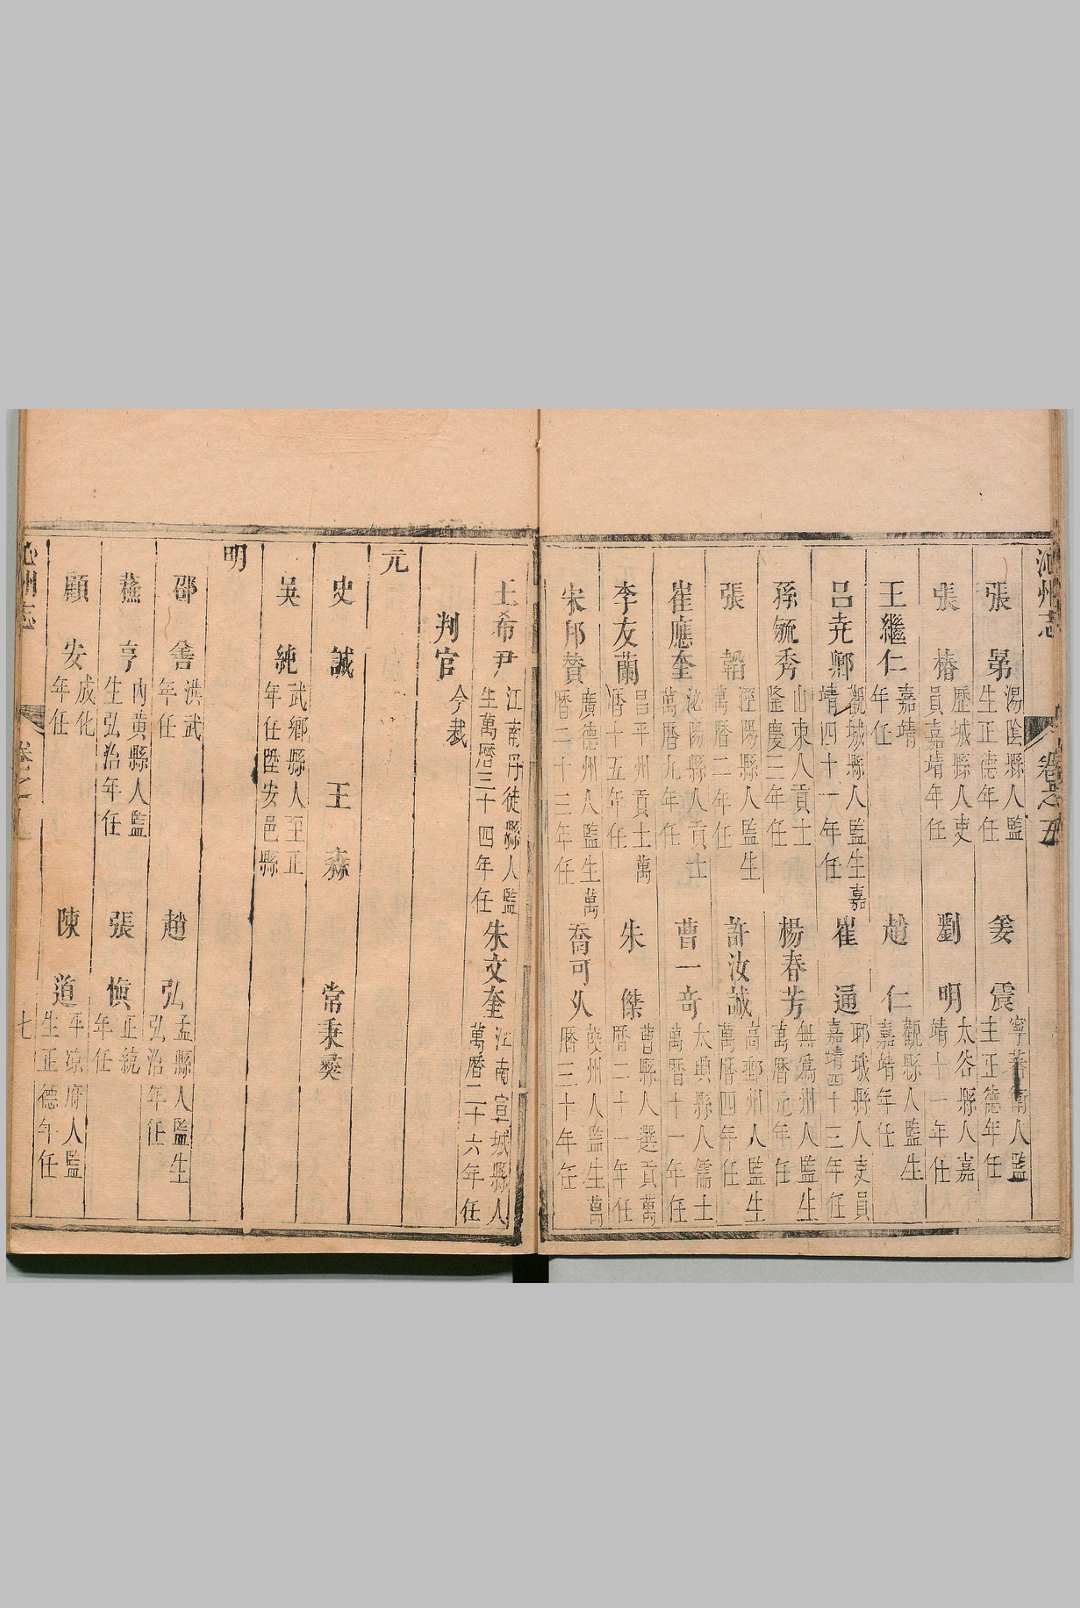 沁州志
卷之五
張㫤 湯陰縣人監生正德年任 姜震 寧蕃衛人監生正德年任
張椿 歷城縣人吏員嘉靖年任 劉明 太谷縣人嘉靖十一年任
王繼仁 嘉靖年任 趙仁 觀縣人監生嘉靖年任
呂尭卿 觀城縣人監生嘉靖四十一年任 崔通 郾城縣人吏員嘉靖四十三年任
孫毓秀 山東人貢士隆慶三年任 楊春芳 無爲州人監生萬曆元年任
張韜 涇陽縣人監生萬曆二年任 許汝誠 高郵州人監生萬曆四年任
崔應奎 沁陽縣人貢士萬曆九年任 曹一奇 太興縣人儒士萬曆十一年任
李友蘭 昌平州貢士萬曆十五年任 朱傑 曹縣人選貢萬曆二十一年任
宋邦贊 廣德州人監生萬曆二十三年任 喬可久 陝州人監生萬曆三十年任
王希尹 江南丹徒縣人監生萬曆三十四年任 朱文奎 江南宣城縣人萬曆二十六年任
判官 今裁
元
史誠 王森 常秉彝
吳純 武鄉縣人至正年任陞安邑縣
明
邵善 洪武年任 趙弘 孟縣人監生弘治年任
蕭亨 內黃縣人監生弘治年任 張慎 正統年任
顧安 成化年任 陳道 平凉府人監生正德年任
沁州志
卷之五
七